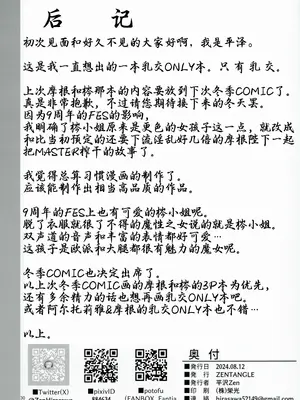 后 记
初次见面和好久不见的大家好啊，我是平泽。
这是我一直想出的一本乳交ONLY本。只 有 乳 交。
上次摩根和梣那本的内容要放到下次冬季COMIC了。
真是非常抱歉，不过请您期待接下来的冬天罢。
因为9周年的FES的影响，
我明确了梣小姐原来是更色的女孩子这一点，就改成
和比当初预定的还要下流淫乱好几倍的摩根陛下一起
把MASTER榨干的故事了。
我觉得总算习惯漫画的制作了。
应该能制作出相当高品质的作品。
9周年的FES上也有可爱的梣小姐呢。
脱了衣服就很了不得的魔性之女说的就是梣小姐。
双声道的音声和丰富的表情都好可爱…
这个孩子是欧派和大腿都很有魅力的魔女呢。
冬季COMIC也决定出席了。
以上次冬季COMIC画的摩根和梣的3P本为优先，
还有多余精力的话也想再画乳交ONLY本吧。
或者阿尔托莉雅&摩根的乳交ONLY本也不错…
以上。
奥 付
■発行日 2024.08.12
■発行 ZENTANGLE
■発行者 平沢Zen
■印刷 (株)栄光
■連絡先 hirasawa52149@gmail.com
Twitter(X)
pixivID
potofu
(FANBOX, Fantia